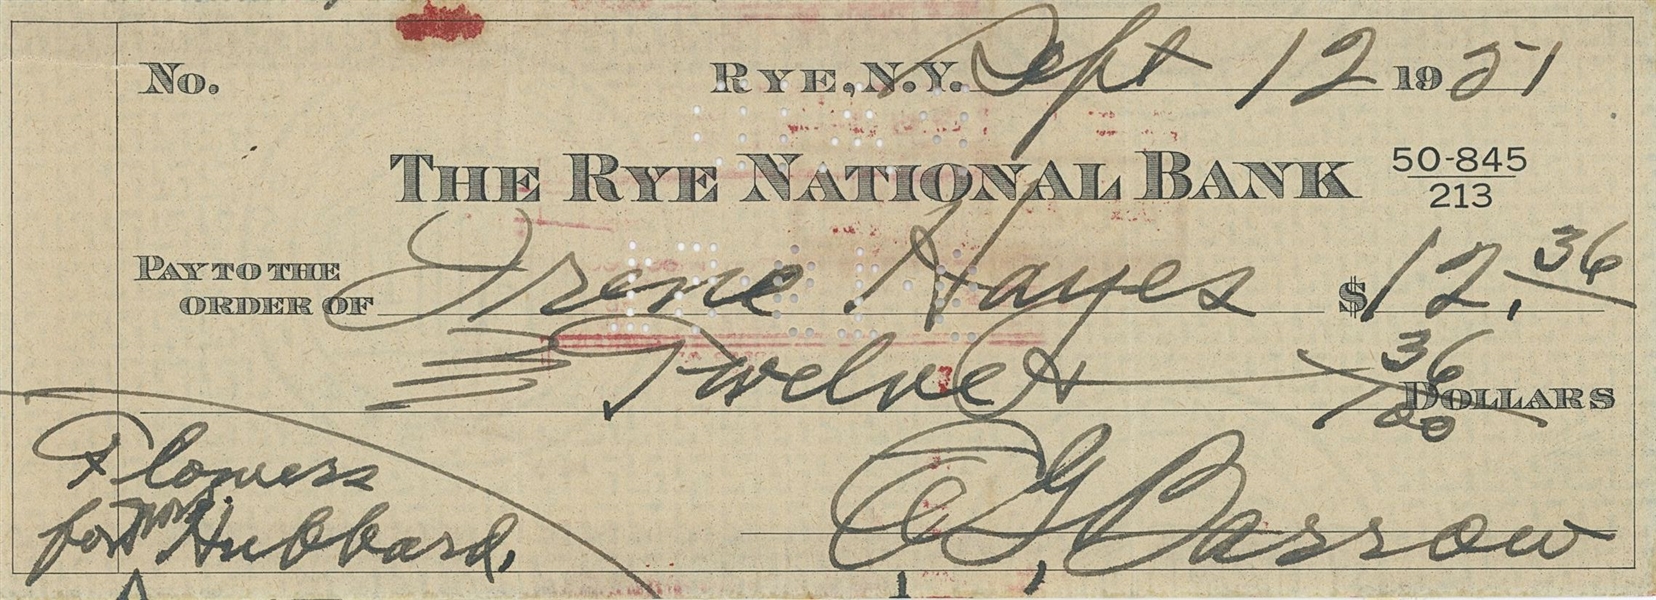 No. RYE, N.Y. Sept 12 1921
THE RYE NATIONAL BANK 50-845
213
PAY TO THE
ORDER OF Irene Hayes $ 12.36
Twelve & 36/100 DOLLARS
Flowers
for Mrs Hubbard.
E G Barrow